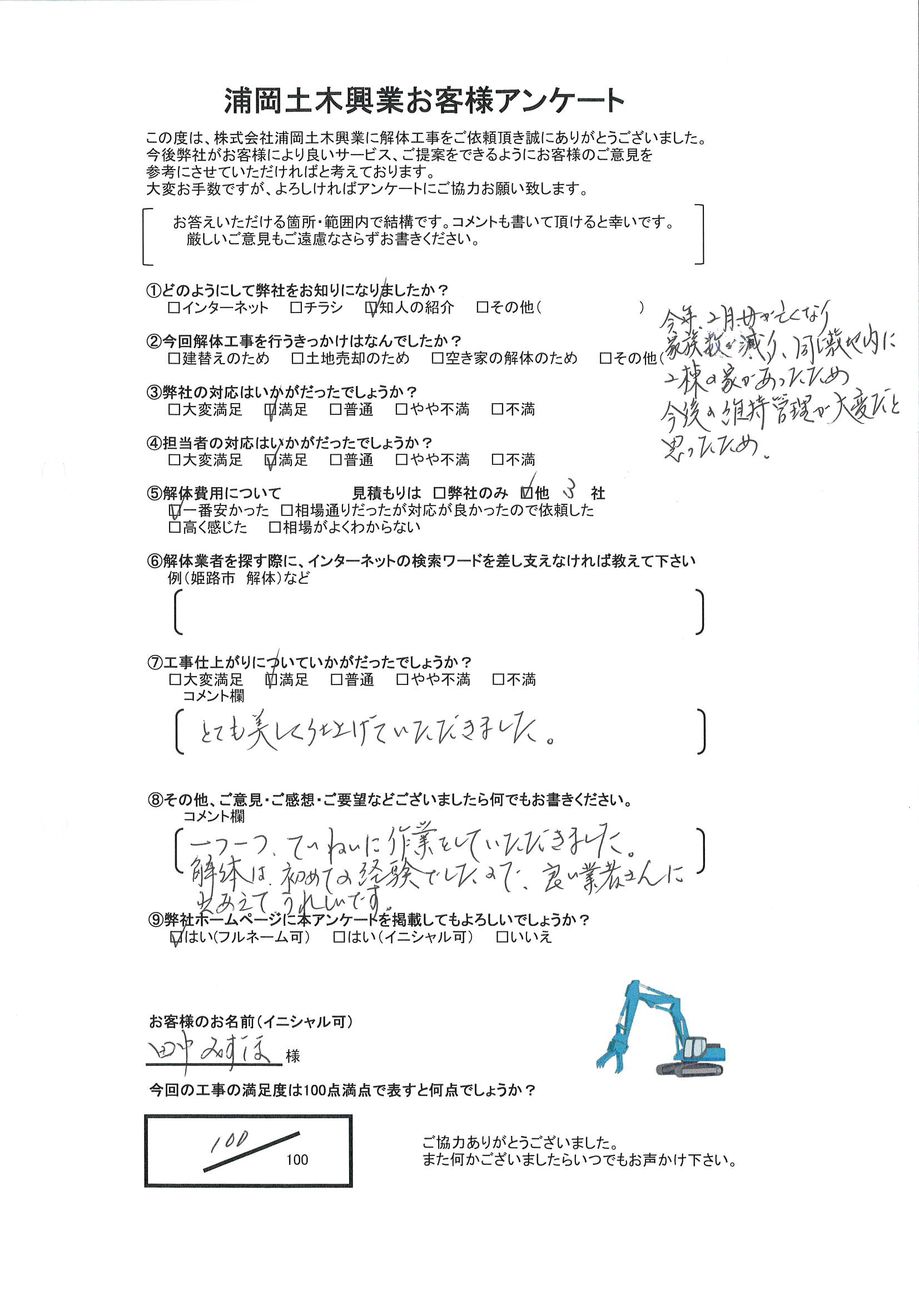 浦岡土木興業お客様アンケート
この度は、株式会社浦岡土木興業に解体工事をご依頼頂き誠にありがとうございました。
今後弊社がお客様により良いサービス、ご提案をできるようにお客様のご意見を
参考にさせていただければと考えております。
大変お手数ですが、よろしければアンケートにご協力お願い致します。
お答えいただける箇所・範囲内で結構です。コメントも書いて頂けると幸いです。
厳しいご意見もご遠慮なさらずお書きください。
①どのようにして弊社をお知りになりましたか？
□インターネット □チラシ ☑知人の紹介 □その他( )
②今回解体工事を行うきっかけはなんでしたか？
□建替えのため □土地売却のため □空き家の解体のため □その他(
今年、2月、母が亡くなり
家族数が減り、同じ敷地内に
2棟の家があったため
今後の維持管理が大変だと
思ったため。
③弊社の対応はいかがだったでしょうか？
□大変満足 ☑満足 □普通 □やや不満 □不満
④担当者の対応はいかがだったでしょうか？
□大変満足 ☑満足 □普通 □やや不満 □不満
⑤解体費用について 見積もりは □弊社のみ ☑他 3 社
☑一番安かった □相場通りだったが対応が良かったので依頼した
□高く感じた □相場がよくわからない
⑥解体業者を探す際に、インターネットの検索ワードを差し支えなければ教えて下さい
例(姫路市 解体)など
⑦工事仕上がりについていかがだったでしょうか？
□大変満足 ☑満足 □普通 □やや不満 □不満
コメント欄
とても美しく仕上げていただきました。
⑧その他、ご意見・ご感想・ご要望などございましたら何でもお書きください。
コメント欄
一つ一つ、ていねいに作業をしていただきました。
解体は、初めての経験でしたので、良い業者さんに
出あえてうれしいです。
⑨弊社ホームページに本アンケートを掲載してもよろしいでしょうか？
☑はい(フルネーム可) □はい(イニシャル可) □いいえ
お客様のお名前(イニシャル可)
田中 みずほ 様
今回の工事の満足度は100点満点で表すと何点でしょうか？
100
100
ご協力ありがとうございました。
また何かございましたらいつでもお声かけ下さい。